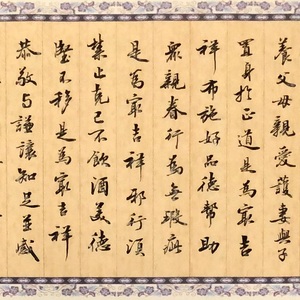 養父母親愛護妻與子
置身於正道是為最吉
祥布施好品德幫助
眾親眷行為無瑕疵
是為最吉祥邪行須
禁止克己不飲酒美德
堅不移是為最吉祥
恭敬与謙讓知足並感